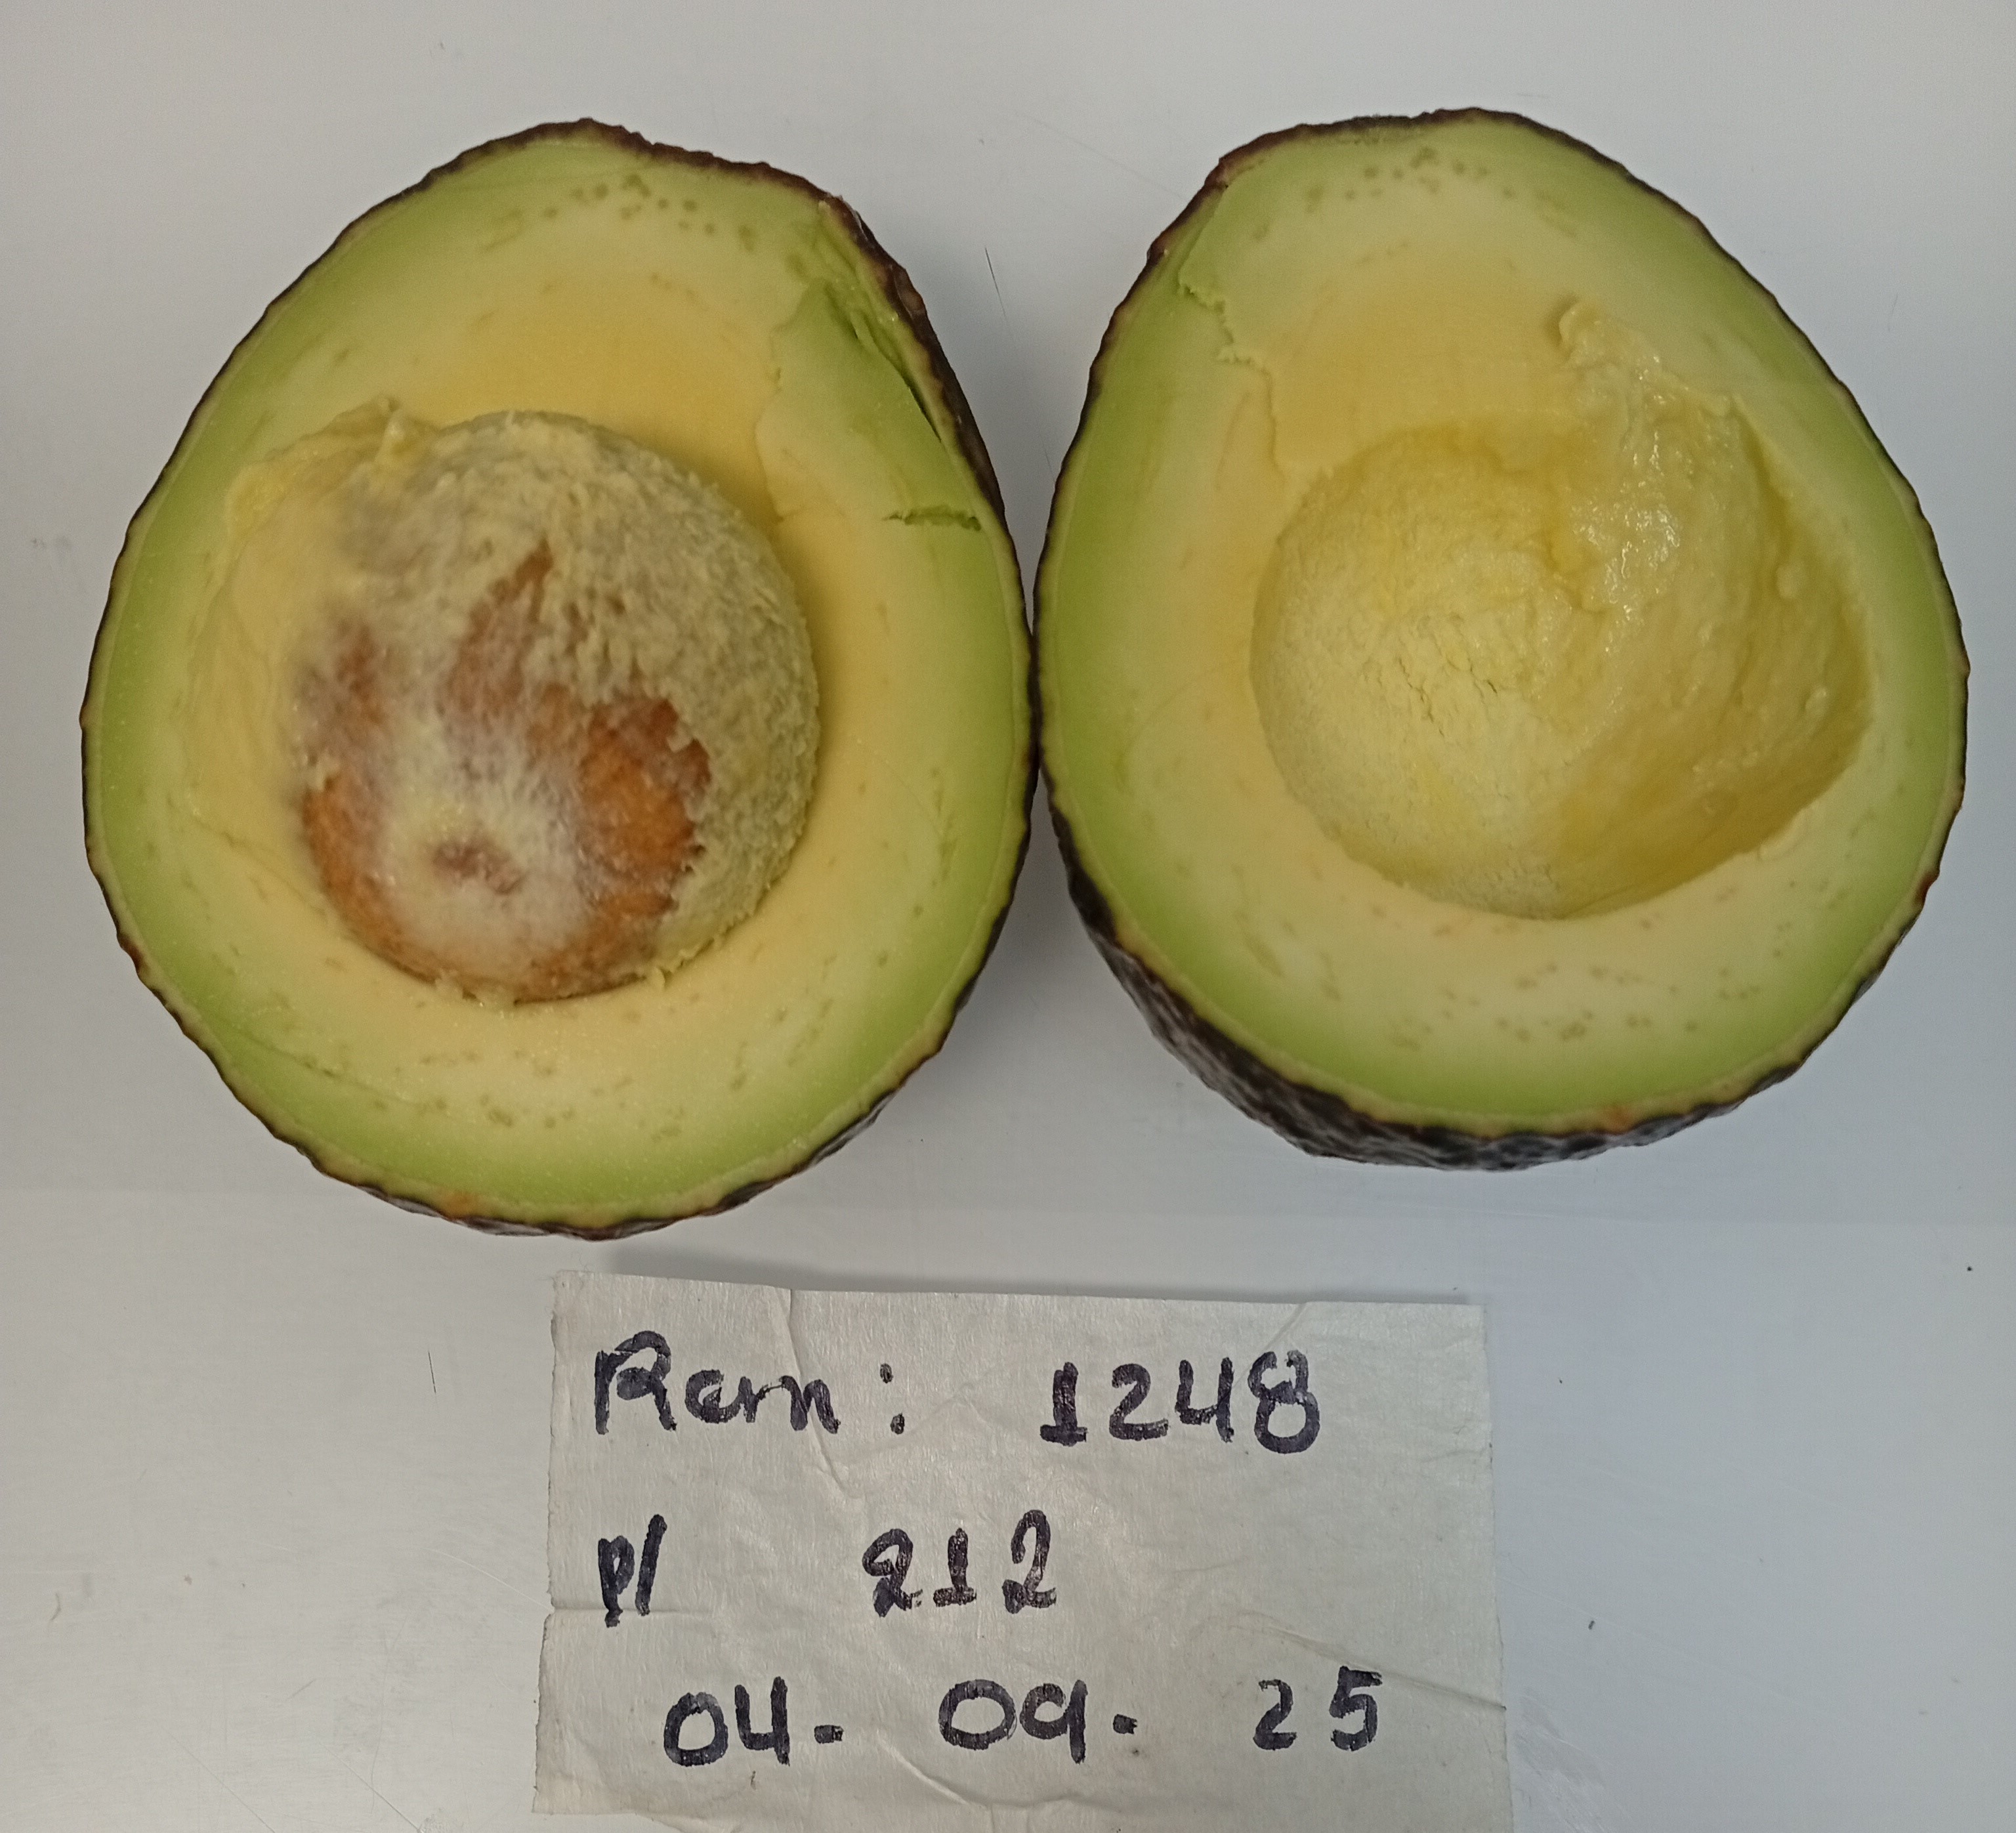 Rem: 1248
p/ 212
04. 09. 25